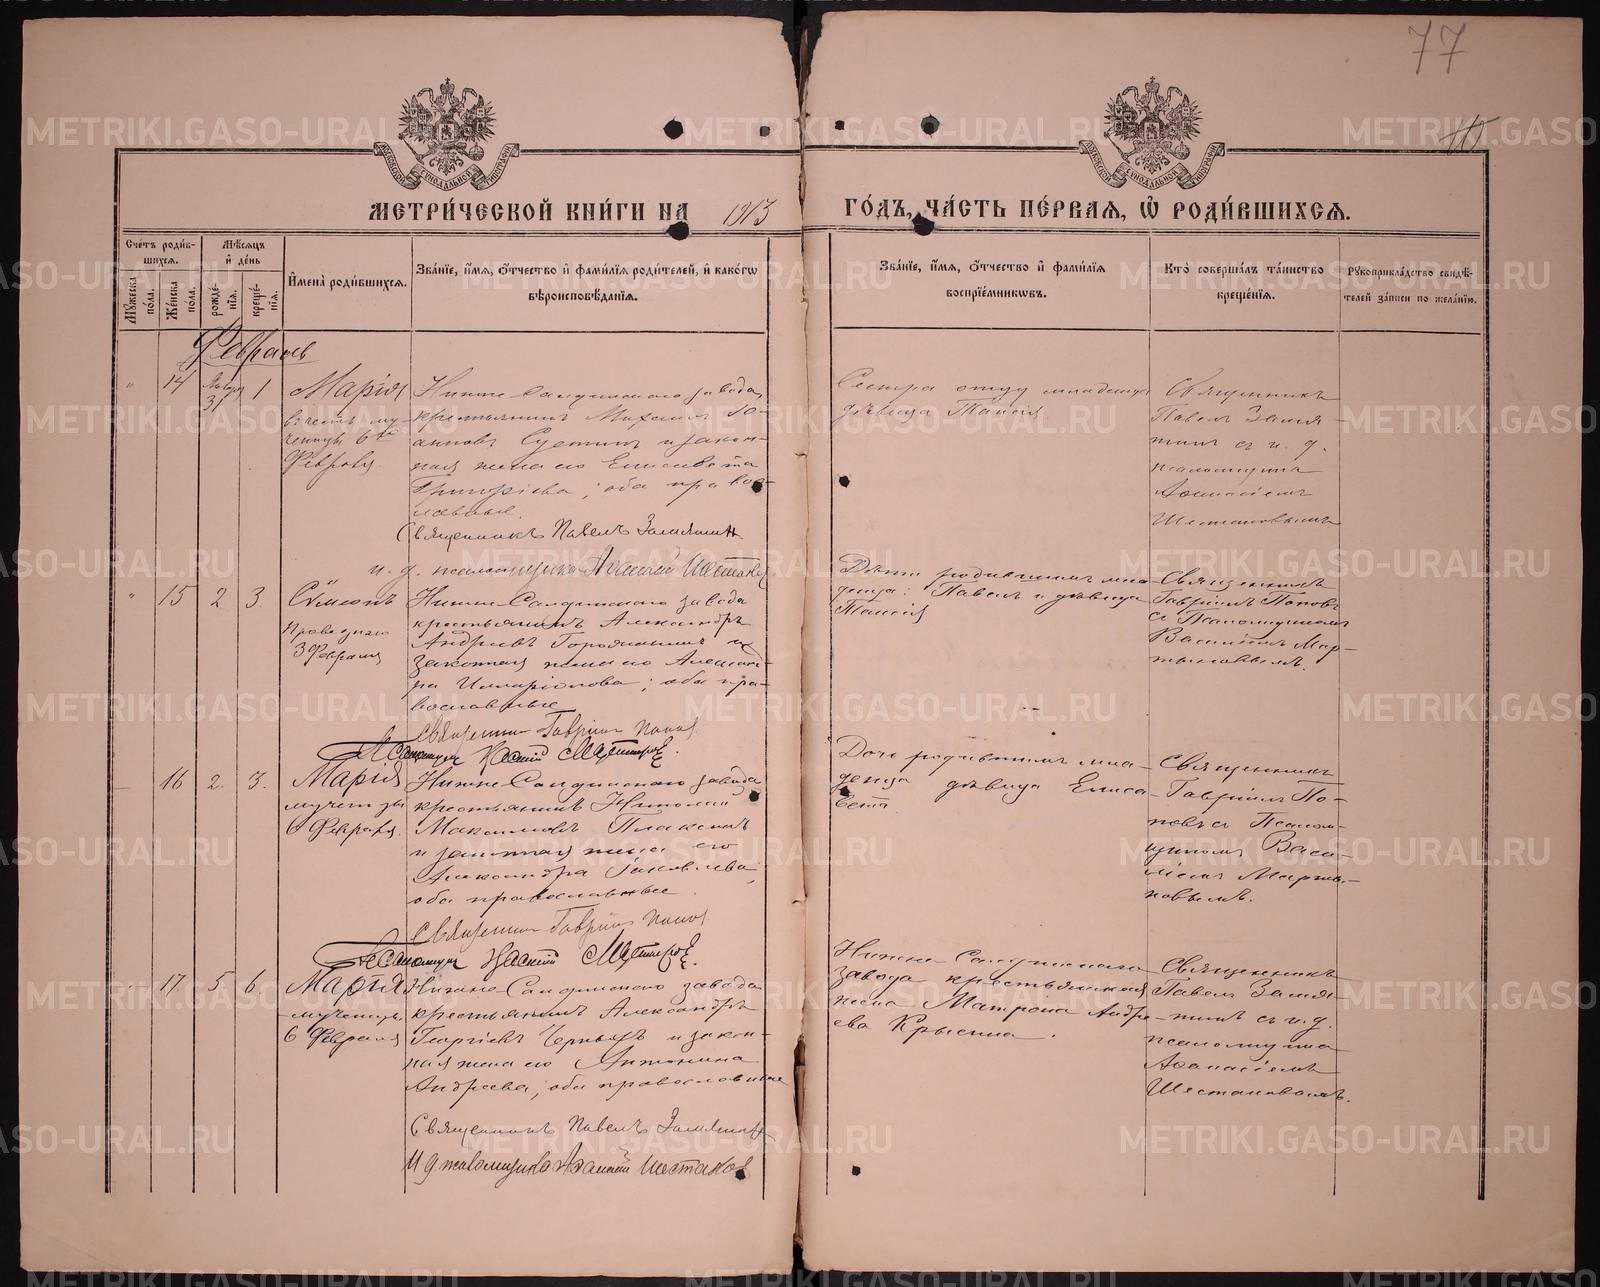 77
МЕТРИ́ЧЕСКОЙ КНИ́ГИ НА 1913 ГО́ДЪ, ЧА́СТЬ ПЕ́РВАЯ, Ѿ РОДИ́ВШИХСЯ.
Сче́тъ роди́в-
шихся.
Му́жеска по́ла.
Же́нска по́ла.
Мѣ́сяцъ и҆ де́нь
рожде́нїя.
креще́нїя.
И҆мена̀ роди́вшихся.
Зва́нїе, и҆́мя, ѻ҆́тчество и҆ фами́лїя роди́телей, и҆ како́гѡ
вѣроисповѣ́данїя.
Зва́нїе, и҆́мя, ѻ҆́тчество и҆ фами́лїя
воспрїе́мникѡвъ.
Кто̀ соверша́лъ та́инство
креще́нїя.
Рꙋкоприкла́дство свидѣ́-
телей за́писи по жела́нїю.
Февраль
14
31
1
Марія
въ честь му-
ченицы 6го
Февраля
Нижне Салдинскаго завода
крестьянинъ Михаилъ Іо-
анновъ и закон-
ная жена его Елисавета
Григоріева; оба право-
славные.
Священникъ Павелъ Замятин
и. д. псаломщика Аѳанасій Шестаков
Сестра отца младенца
дѣвица Таисія
Священникъ
Павелъ Замя-
тинъ съ и. д.
псаломщика
Аѳанасіемъ
Шестаковымъ
15
2
3
Сѷмеонъ
праведнаго
3 Февраля
Нижне-Салдинскаго завода
крестьянинъ Александръ
Андреевъ и
законная жена его Алексан-
дра Илларіонова; оба пра-
вославные
Священник Гавріил Попов
Псаломщик Василій Мартынов.
Дѣти родившимъ мла-
денца: Павелъ и дѣвица
Таисія
Священникъ
Гавріилъ Поповъ
съ Псаломщикомъ
Василіемъ Мар-
тыновымъ.
16
2.
3.
Марія
мученицы
6 Февраля.
Нижне Салдинскаго завода
крестьянинъ Николай
Максимовъ
и законная жена его
Александра Іаковлева,
оба православные.
Священник Гавріил Попов
Псаломщик Василій Мартынов.
Дочь родившимъ мла-
денца дѣвица Елиса-
вета
Священникъ
Гавріилъ По-
повъ съ Псалом-
щикомъ Васи-
ліемъ Марты-
новымъ.
17.
5.
6.
Марія
мученицы
6 Февраля
Нижне-Салдинскаго завода
крестьянинъ Александръ
Георгіевъ Черныхъ и закон-
ная жена его Антонина
Андреева; оба православные
Священникъ Павелъ Замятин
И. д. псаломщика Аѳанасій Шестаков
Нижне Салдинскаго
завода крестьянская
жена Матрона Андре-
ева Крысина.
Священникъ
Павелъ Замя-
тинъ съ и. д.
псаломщика
Аѳанасіемъ
Шестаковымъ.
METRIKI.GASO-URAL.RU